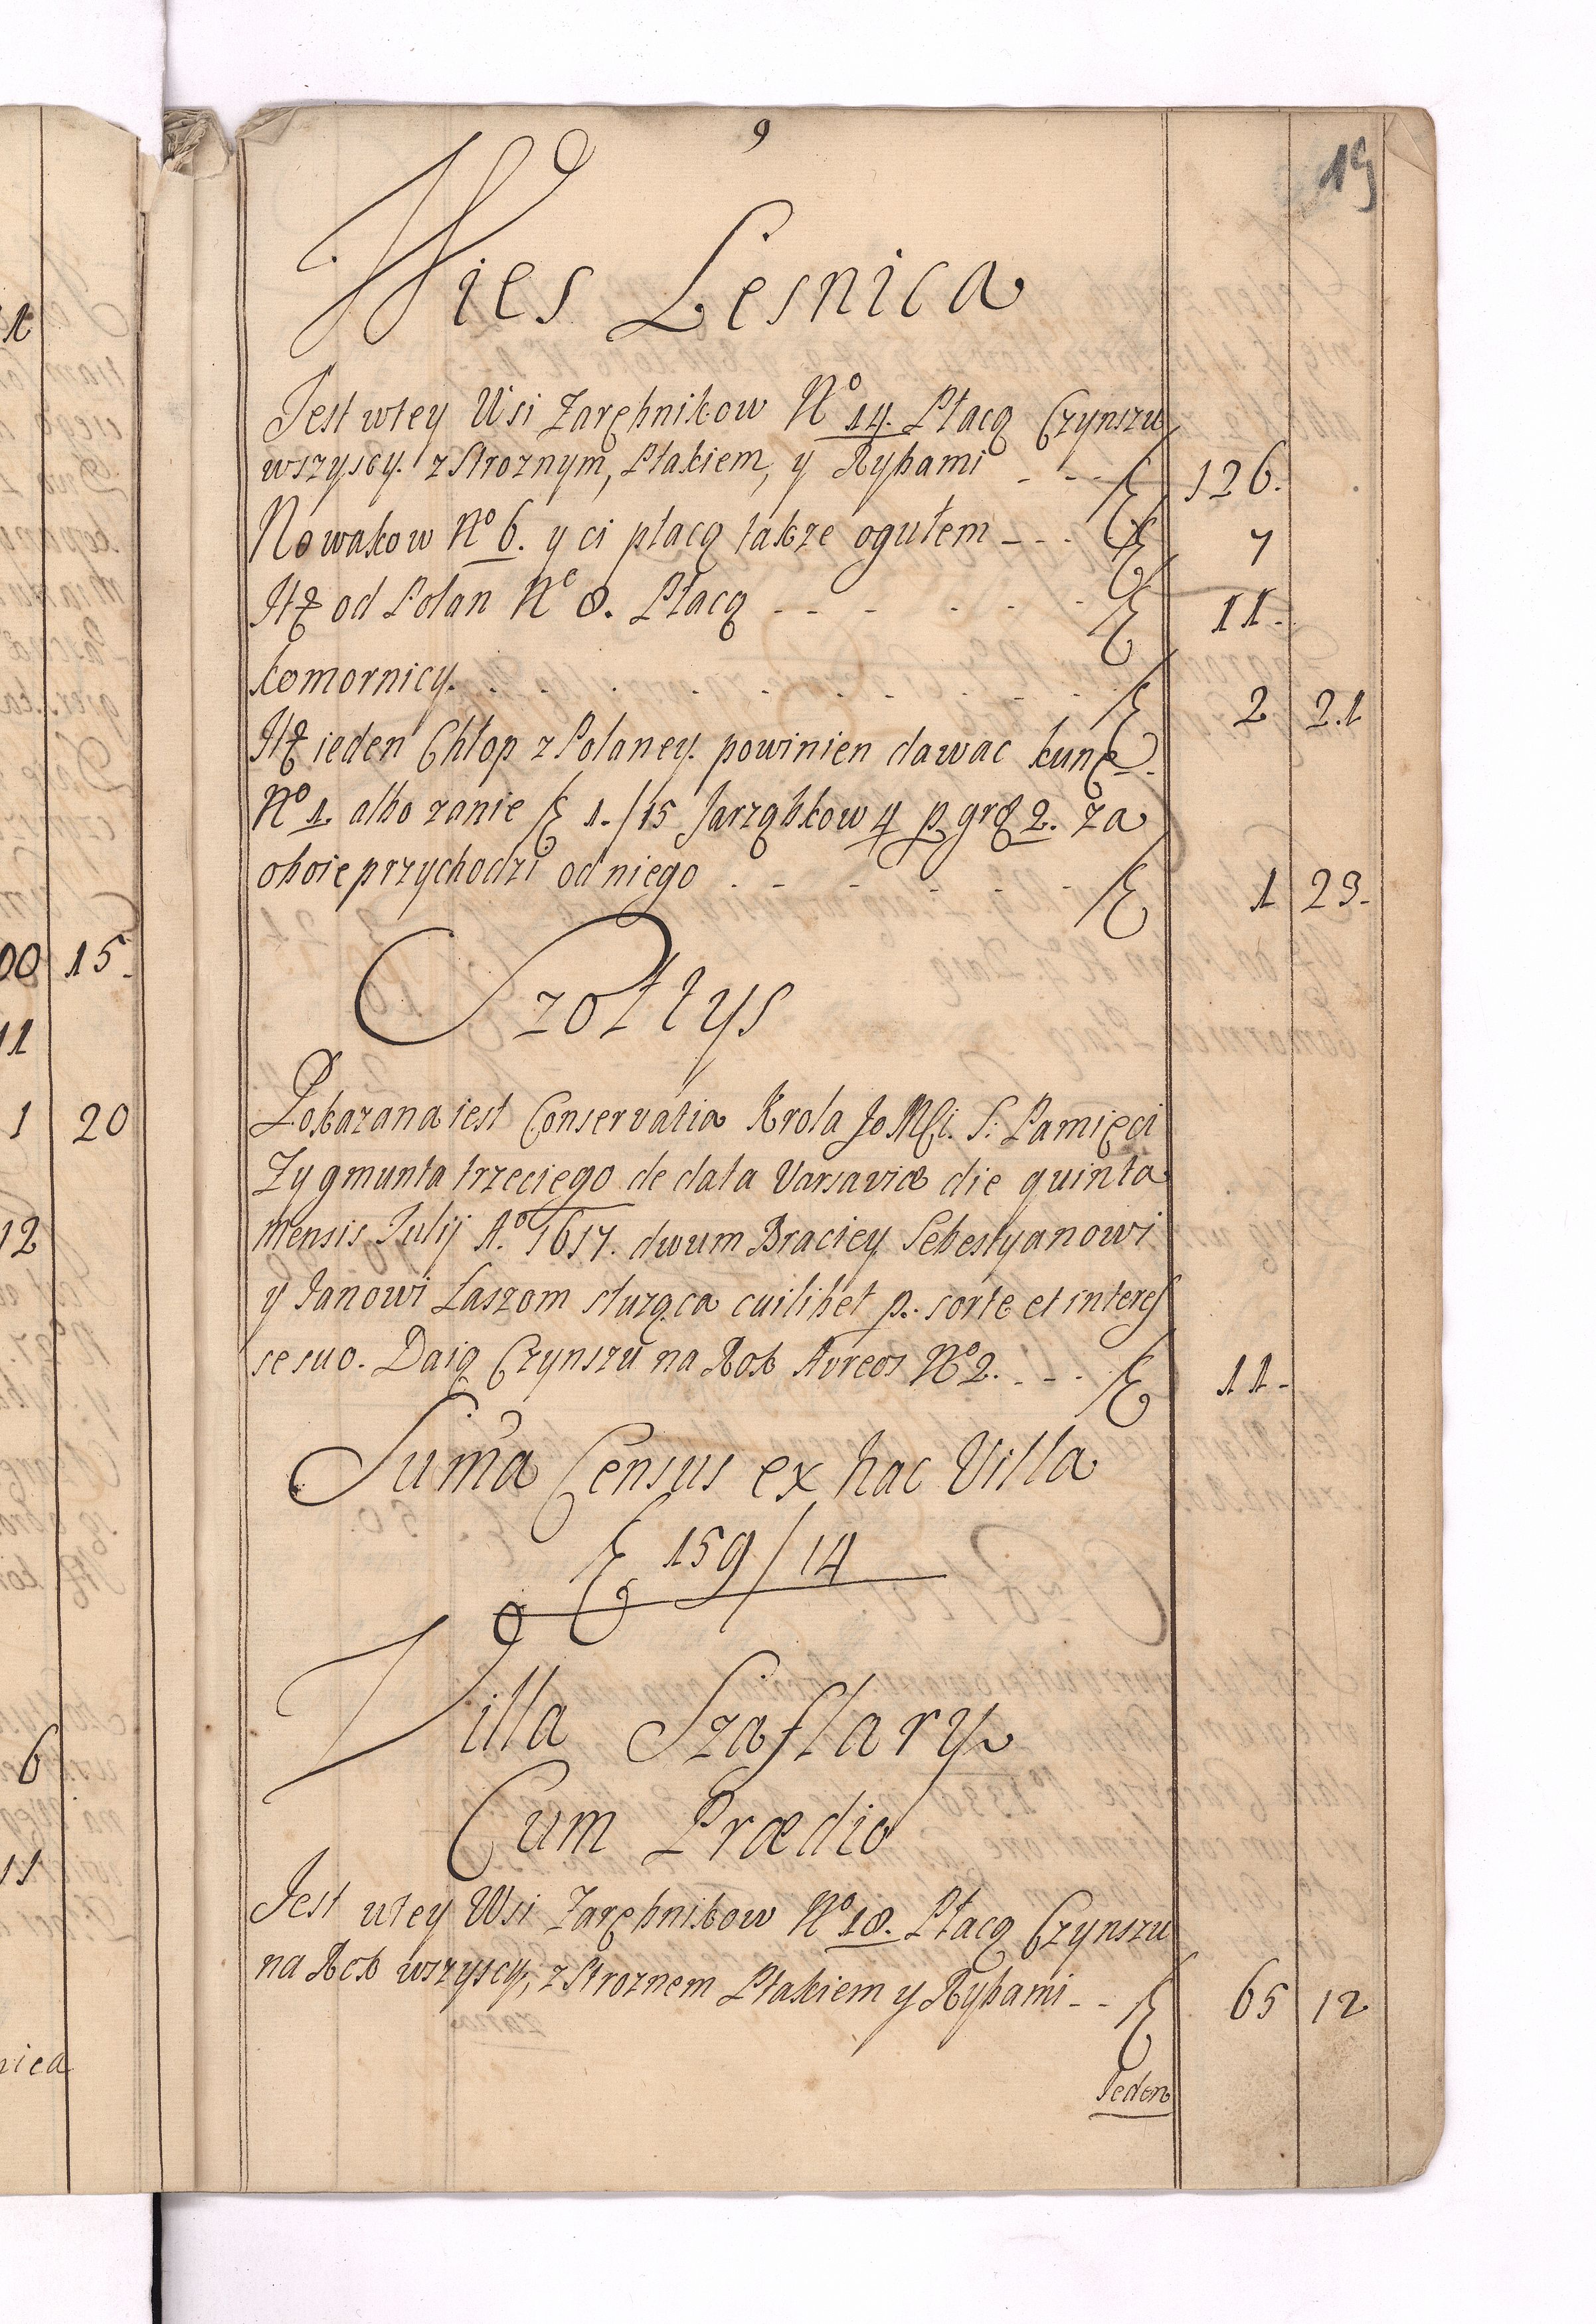 9
19
Wies Lesnica
Jest wtey Wsi Zarębnikow No 14. Płacą Czynszu
wszyscy z Stroznym, Ptakiem, y Rybami - - - f 126.
Nowakow No 6. y ci płacą takze ogułem - - - f 7
It od Polan No 8. Płacą - - - - - - f 11.
komornicy. . . . . . . . . f 2 21
It ieden Chłop z Polaney. powinien dawac kunę
No 1. albo zanie f 1./15 Jarząbkow 4 p gr 2. za
oboie przychodzi od niego - - - - - - f 1 23.
Szołtys
Pokazana iest Conservatia Krola Jo Mści. S. Pamięci
Zygmunta trzeciego de data Varsaviæ die quinta
mensis Julij Ao 1617. dwum Braciey Sebestyanowi
y Janowi Laszom słuząca cuilibet p. sorte et interes
se suo. Daią Czynszu na Rok Aureos No 2. - - - f 11.
Suma Census ex hac Villa
f 159/14
Villa Szaflary
Cum Prædio
Jest wtey Wsi Zarębnikow No 18. Płacą Czynszu
na Rok wszyscy, z Stroznem Ptakiem y Rybami - - f 65 12
Jeden
00 15.
11
1 20
12
6
11